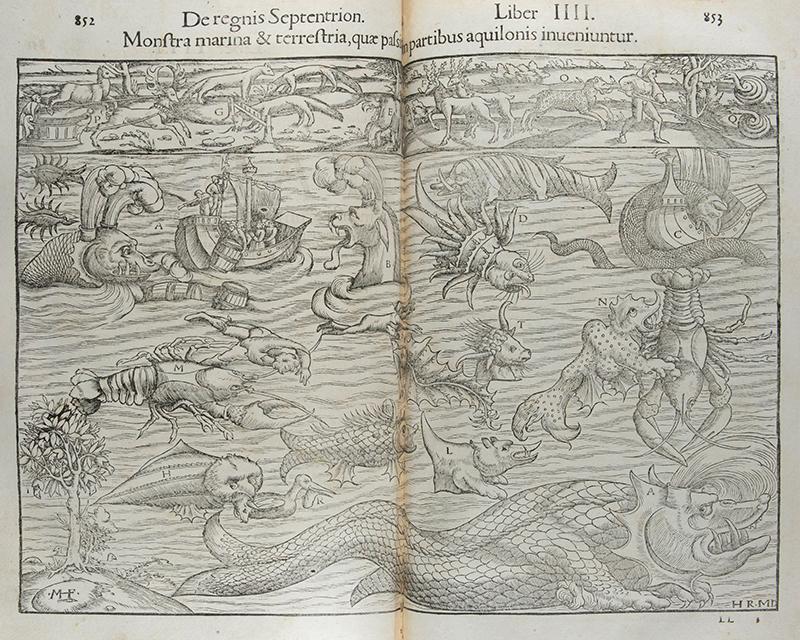 852 De regnis Septentrion. Liber IIII. 853
Monſtra marina & terreſtria, quæ paſſim partibus aquilonis inueniuntur.
G
O
A
B
D
C
T
N
M
L
H
K
A
·MF·
HR·MD
LL